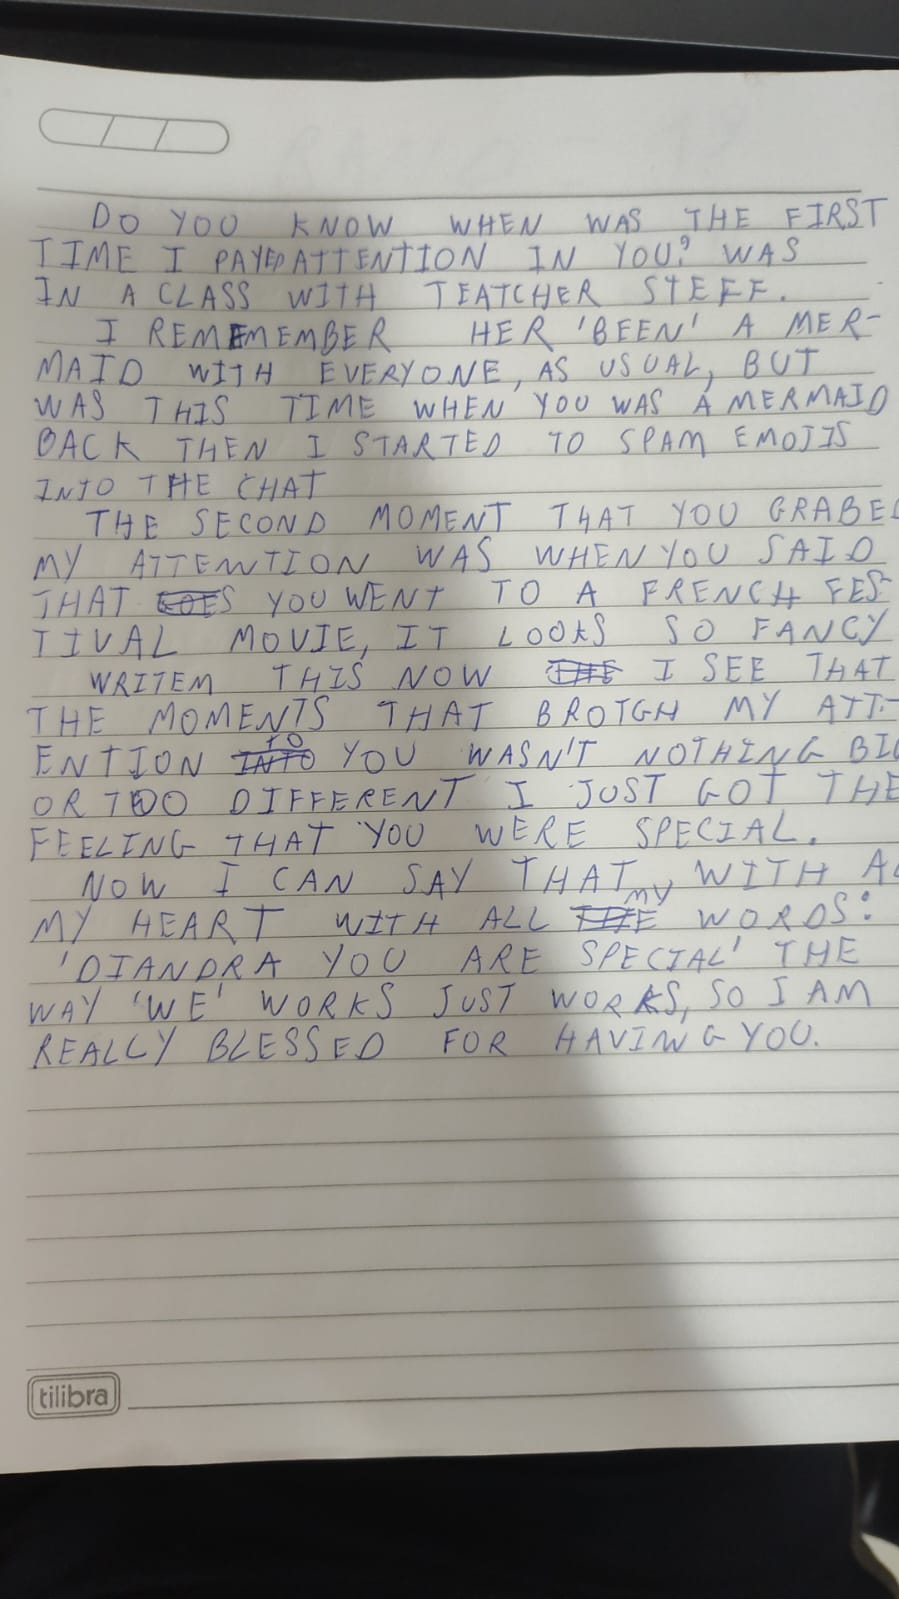 DO YOU KNOW WHEN WAS THE FIRST
TIME I PAYED ATTENTION IN YOU? WAS
IN A CLASS WITH TEATCHER STEFF.
I REMEMEMBER HER 'BEEN' A MER-
MAID WITH EVERYONE, AS USUAL, BUT
WAS THIS TIME WHEN YOU WAS A MERMAID
BACK THEN I STARTED TO SPAM EMOJIS
INTO THE CHAT
THE SECOND MOMENT THAT YOU GRABED
MY ATTENTION WAS WHEN YOU SAID
THAT YOU WENT TO A FRENCH FES-
TIVAL MOVIE, IT LOOKS SO FANCY
WRITEM THIS NOW I SEE THAT
THE MOMENTS THAT BROTGH MY ATT-
ENTION TO YOU WASN'T NOTHING BIG
OR TOO DIFFERENT I JUST GOT THE
FEELING THAT YOU WERE SPECIAL.
NOW I CAN SAY THAT WITH
MY HEART WITH ALL MY WORDS:
'DIANDRA YOU ARE SPECIAL' THE
WAY 'WE' WORKS JUST WORKS, SO I AM
REALLY BLESSED FOR HAVING YOU.
tilibra